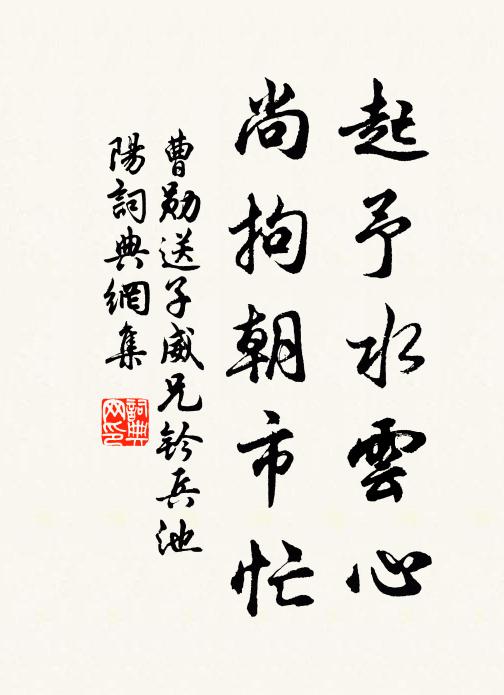 起予水雲心
尚拘朝市忙
曹勛送子威兄鈐兵池
陽詞典網集
詞典
网印